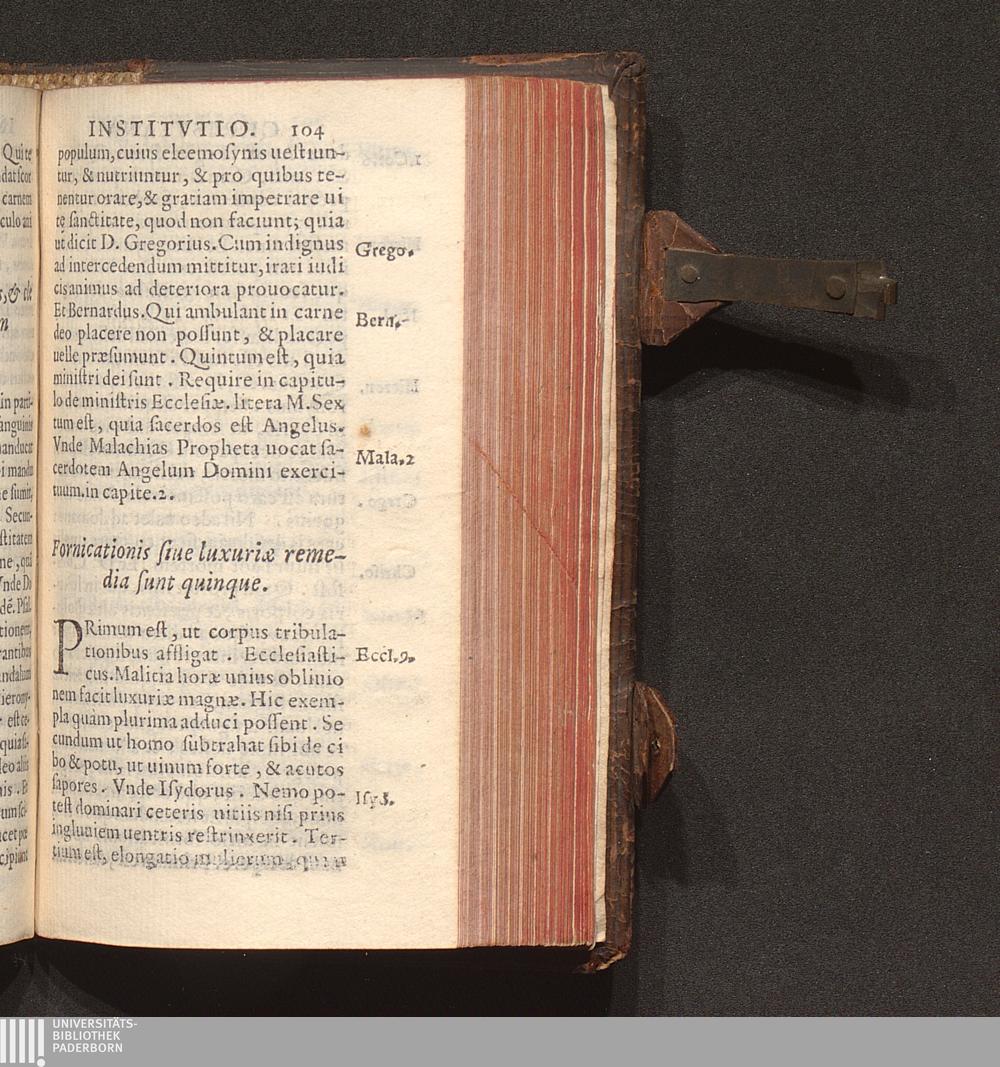 INSTITVTIO. 104
populum, cuius eleemosynis uestiun-
tur, & nutriuntur, & pro quibus te-
nentur orare, & gratiam impetrare ui
tę sanctitate, quod non faciunt; quia
ut dicit D. Gregorius. Cum indignus
Grego.
ad intercedendum mittitur, irati iudi
cis animus ad deteriora prouocatur.
Et Bernardus. Qui ambulant in carne
Bern.
deo placere non possunt, & placare
uelle præsumunt. Quintum est, quia
ministri dei sunt. Require in capitu-
lo de ministris Ecclesiæ. litera M. Sex
tum est, quia sacerdos est Angelus.
Vnde Malachias Propheta uocat sa-
Mala.2
cerdotem Angelum Domini exerci-
tuum. in capite. 2.
Fornicationis siue luxuriæ reme-
dia sunt quinque.
PRimum est, ut corpus tribula-
tionibus affligat. Ecclesiasti-
Eccl.9.
cus. Malicia horæ unius oblinio
nem facit luxuriæ magnæ. Hic exem-
pla quàm plurima adduci possent. Se
cundum ut homo subtrahat sibi de ci
bo & potu, ut uinum forte, & acutos
sapores. Vnde Isydorus. Nemo po-
Isyd.
test dominari ceteris uitiis nisi prius
ingluuiem uentris restrinxerit. Ter-
tium est, elongatio mulierum, quia
UNIVERSITÄTS-
BIBLIOTHEK
PADERBORN